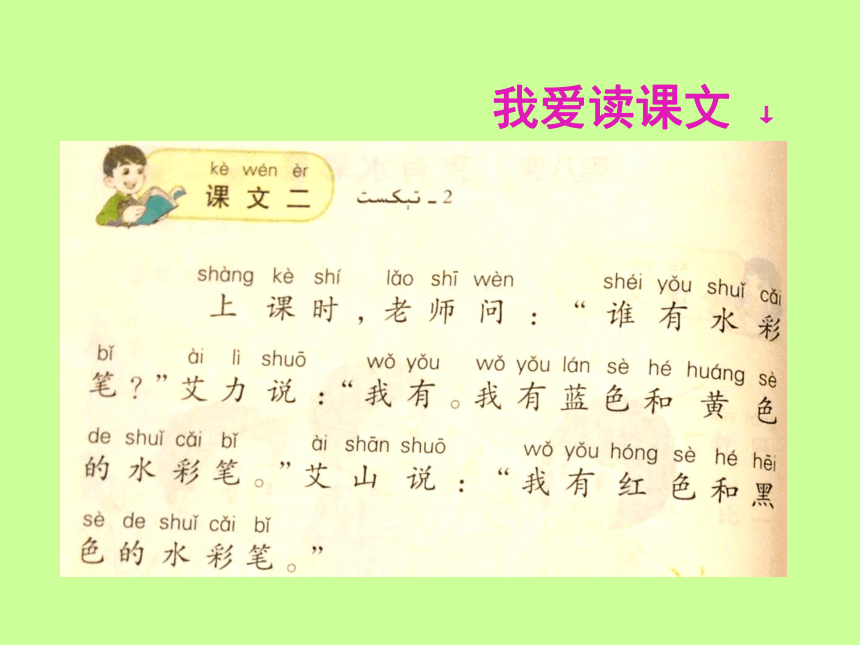 我爱读课文 ↓
kè wén èr
课文二
2 ـ تېكىست
shàng kè shí lǎo shī wèn shéi yǒu shuǐ cǎi
上课时，老师问：“谁有水彩
bǐ ài lì shuō wǒ yǒu wǒ yǒu lán sè hé huáng sè
笔？”艾力说：“我有。我有蓝色和黄色
de shuǐ cǎi bǐ ài shān shuō wǒ yǒu hóng sè hé hēi
的水彩笔。”艾山说：“我有红色和黑
sè de shuǐ cǎi bǐ
色的水彩笔。”